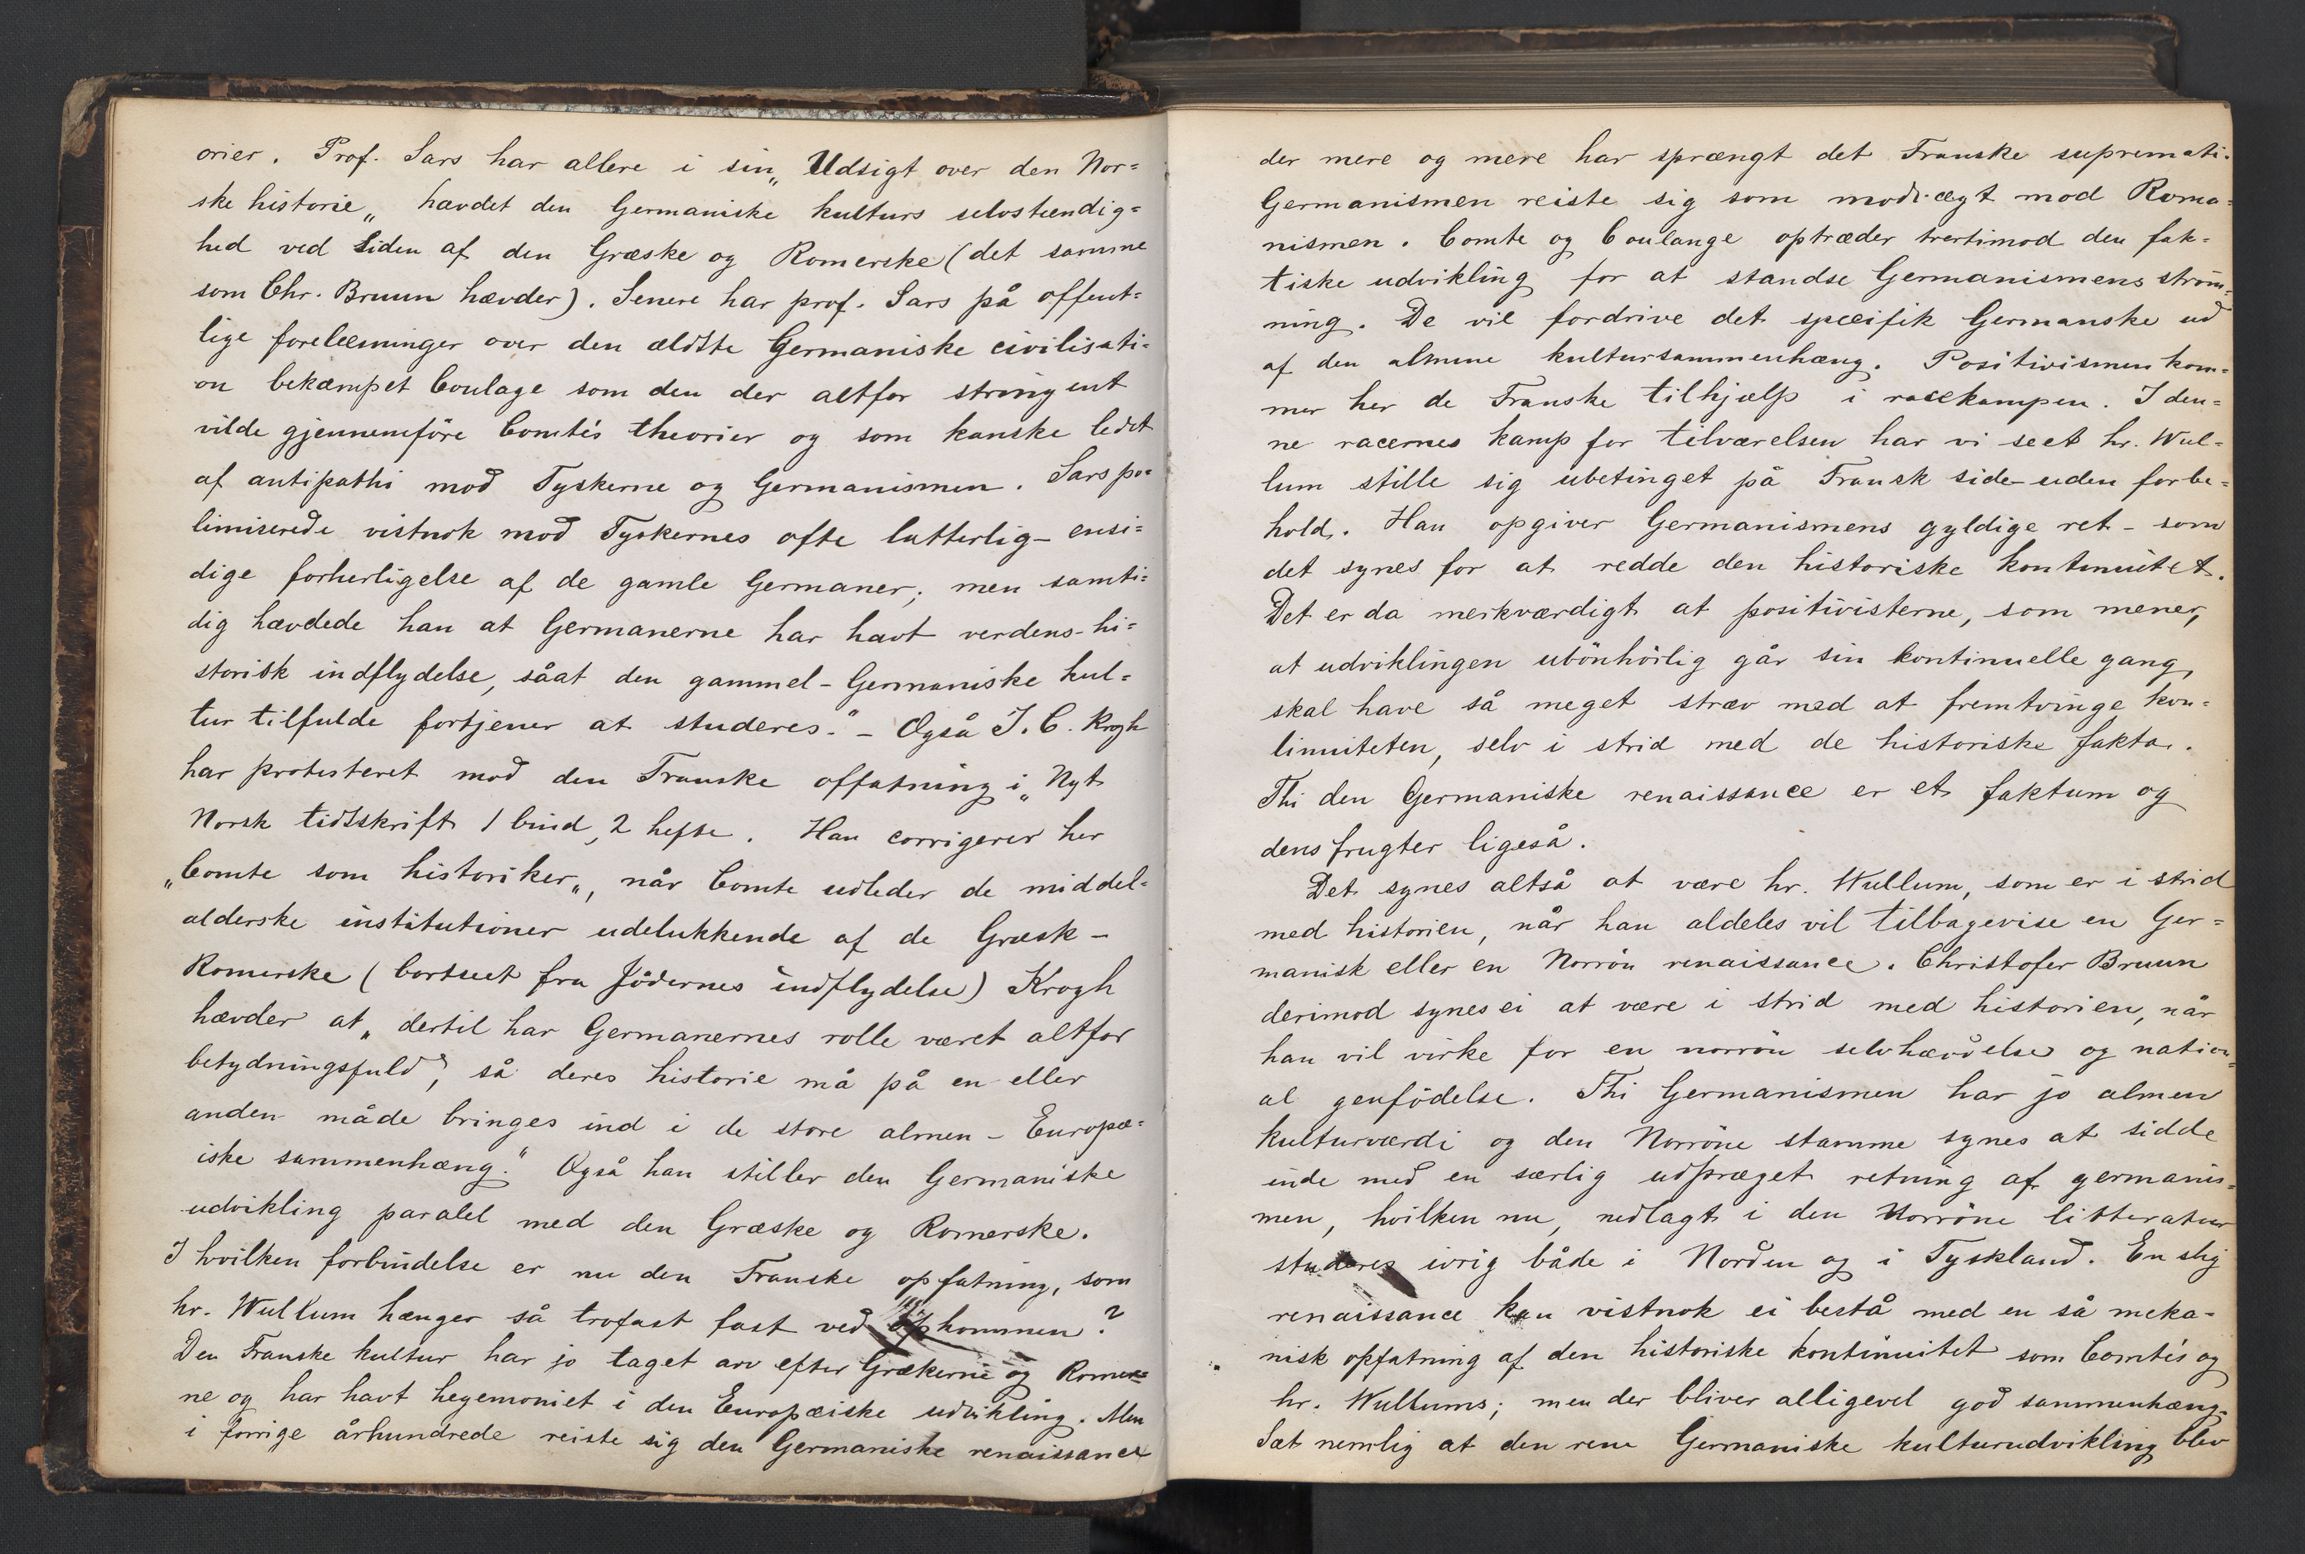 orier. Prof. Sars har allere i sin „Udsigt over den Nor=
ske historie„ hævdet den Germaniske kulturs selvstændig=
hed ved siden af den Græske og Romerske (det samme
som Chr. Bruun hævder). Senere har prof. Sars på offent=
lige forelæsninger over den ældste Germaniske civilisati=
on bekæmpet Coulage som den der altfor stringent
vilde gjennemföre Comte's theorier og som kanske ledet
af antipathi mod Tyskerne og Germanismen. Sars po=
limiserede vistnok mod Tyskernes ofte latterlig- ensi=
dige forherligelse af de gamle Germaner; men samti=
dig hævdede han at Germanerne har havt verdens-hi=
storisk indflydelse, såat den gammel-Germaniske kul=
tur tilfulde fortjener at studeres." - Også J. C. Krogh
har protesteret mod den Franske offatning i „Nyt
Norsk tidsskrift 1 bind, 2 hefte. Han corrigerer her
„Comte som historiker„, når Comte udleder de middel=
alderske institutioner udelukkende af de Græsk-
Romerske (bortseet fra Jödernes indflydelse) Krogh
hævder at „dertil har Germanernes rolle været altfor
betydningsfuld", så deres historie må på en eller
anden måde bringes ind i de store almen-Europæ=
iske sammenhæng." Også han stiller den Germaniske
udvikling paralel med den Græske og Romerske.
I hvilken forbindelse er nu den Franske opfatning, som
hr. Wullum hænger så trofast fast ved opkommen?
Den Franske kultur har jo taget arv efter Grækerne og Romer=
ne og har havt hegemoniet i den Europæiske udvikling. Men
i forrige århundrede reiste sig den Germaniske renaissance
der mere og mere har sprængt det Franske supremati.
Germanismen reiste sig som modvægt mod Roma=
nismen. Comte og Coulange optræder tvertimod den fak=
tiske udvikling for at standse Germanismens ström=
ning. De vil fordrive det specifik Germanske ud
af den almene kultursammenhæng. Positivismen kom=
mer her de Franske tilhjælp i racekampen. I den=
ne racernes kamp for tilværelsen har vi seet hr. Wul=
lum stille sig ubetinget på Fransk side-uden forbe=
hold. Han opgiver Germanismens gyldige ret - som
det synes for at redde den historiske kontinuitet.
Det er da merkværdigt at positivisterne, som mener,
at udviklingen ubönhörlig går sin kontinuelle gang,
skal have så meget stræv med at fremtvinge kon=
tinuiteten, selv i strid med de historiske fakta.
Thi den Germaniske renaissance er et faktum og
dens frugter ligeså.
Det synes altså at være hr. Wullum, som er i strid
med historien, når han aldeles vil tilbagevise en Ger=
manisk eller en Norrön renaissance. Christofer Bruun
derimod synes ei at være i strid med historien, når
han vil virke for en norrön selvhævdelse og nation=
al genfödelse. Thi Germanismen har jo almen
kulturværdi og den Norröne stamme synes at sidde
inde med en særlig udpræget retning af germanis=
men, hvilken nu, nedlagt i den Norröne litteratur
studeres ivrig både i Norden og i Tyskland. En slig
renaissance kan vistnok ei bestå med en så meka-
nisk opfatning af den historiske kontinuitet som Comte's og
hr. Wullums; men der bliver alligevel god sammenhæng.
Sæt nemlig at den rene Germaniske kulturudvikling blev